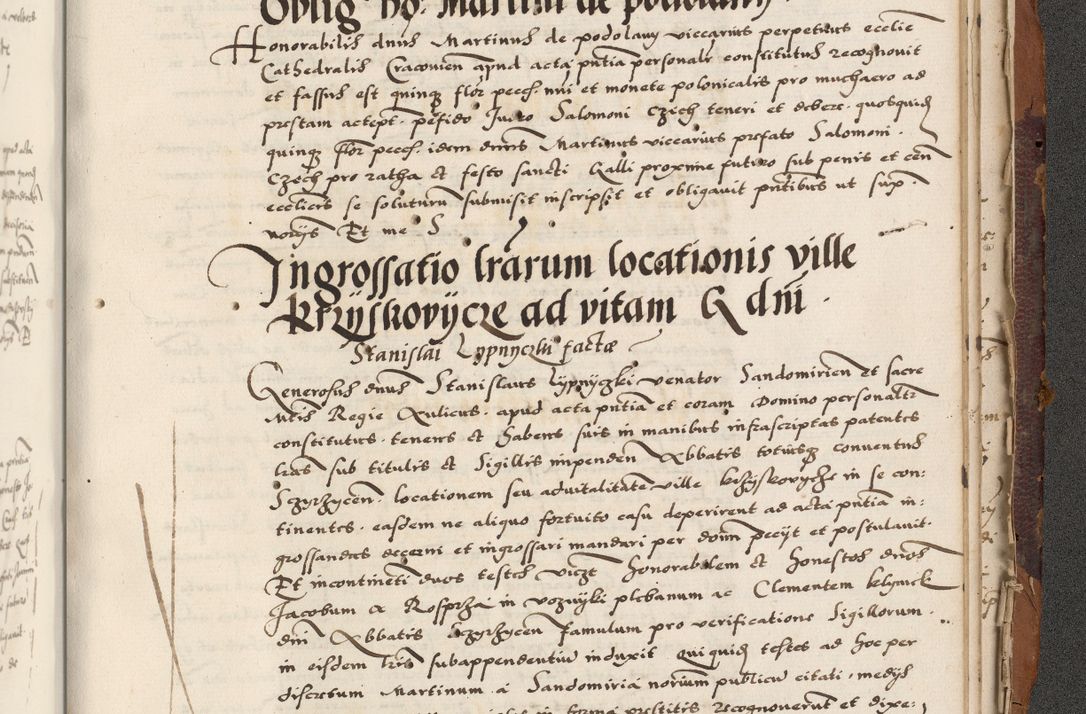 Oblig do. Martini de podolany
Honorabilis dnus Martinus de podolany viccarius perpetuus ecclie
Cathedralis Cracovien apud acta pntia personalr constitutus recognovit
et fassus est quinq flor pecch. nui et monete polonicalis pro muchaero ad
prestam accept. pefido Judeo Salomoni Czech teneri et debere. quosquid
quinq flor pecch. idem dnus Martinus viccarius prefato Salomoni
Czech pro ratha et festo sancti Galli proxime futuro sub penis et cen
ecclicis se soluturu submisit inscripsit et obligavit pntibus ut sup.
norijs Et me S
Ingrossatio lrarum locationis ville
Krzyskovijcze ad vitam G dni
Stanislai Lypnyczki facta
Generosus dnus Stanislaus Lypnyczki venator Sandomirien et sacre
Mtis Regie Aulicus. apud acta pntia et coram Domino personaltr
constitutus. tenens et habens suis in manibus infrascriptas patentes
lras sub titulis et Sigillis impenden Abbatis totiusq conventus
Sczyrzycen. locationem seu advitalitate ville krzyskovyche in se con:
tinentes. easdem ne aliquo fortuito casu deperirent ad acta pntia in:
grossandas decerni et ingrossari mandari per dom pecijt et postulavit.
Et incontineti duos testes vidzt honorabilem et honestos dnos
Jacobum a Rosprza in voznijki plebanum ac Clementem
dni Abbatis Sczyrzycen famulum pro verificatione Sigillorum.
in eisdem lris subappendentiu induxit qui quid testes ad hoc per
discretum Martinum a Sandomiria norium publicu citati. medijs
in forma prestitis recognoverunt et dixe: